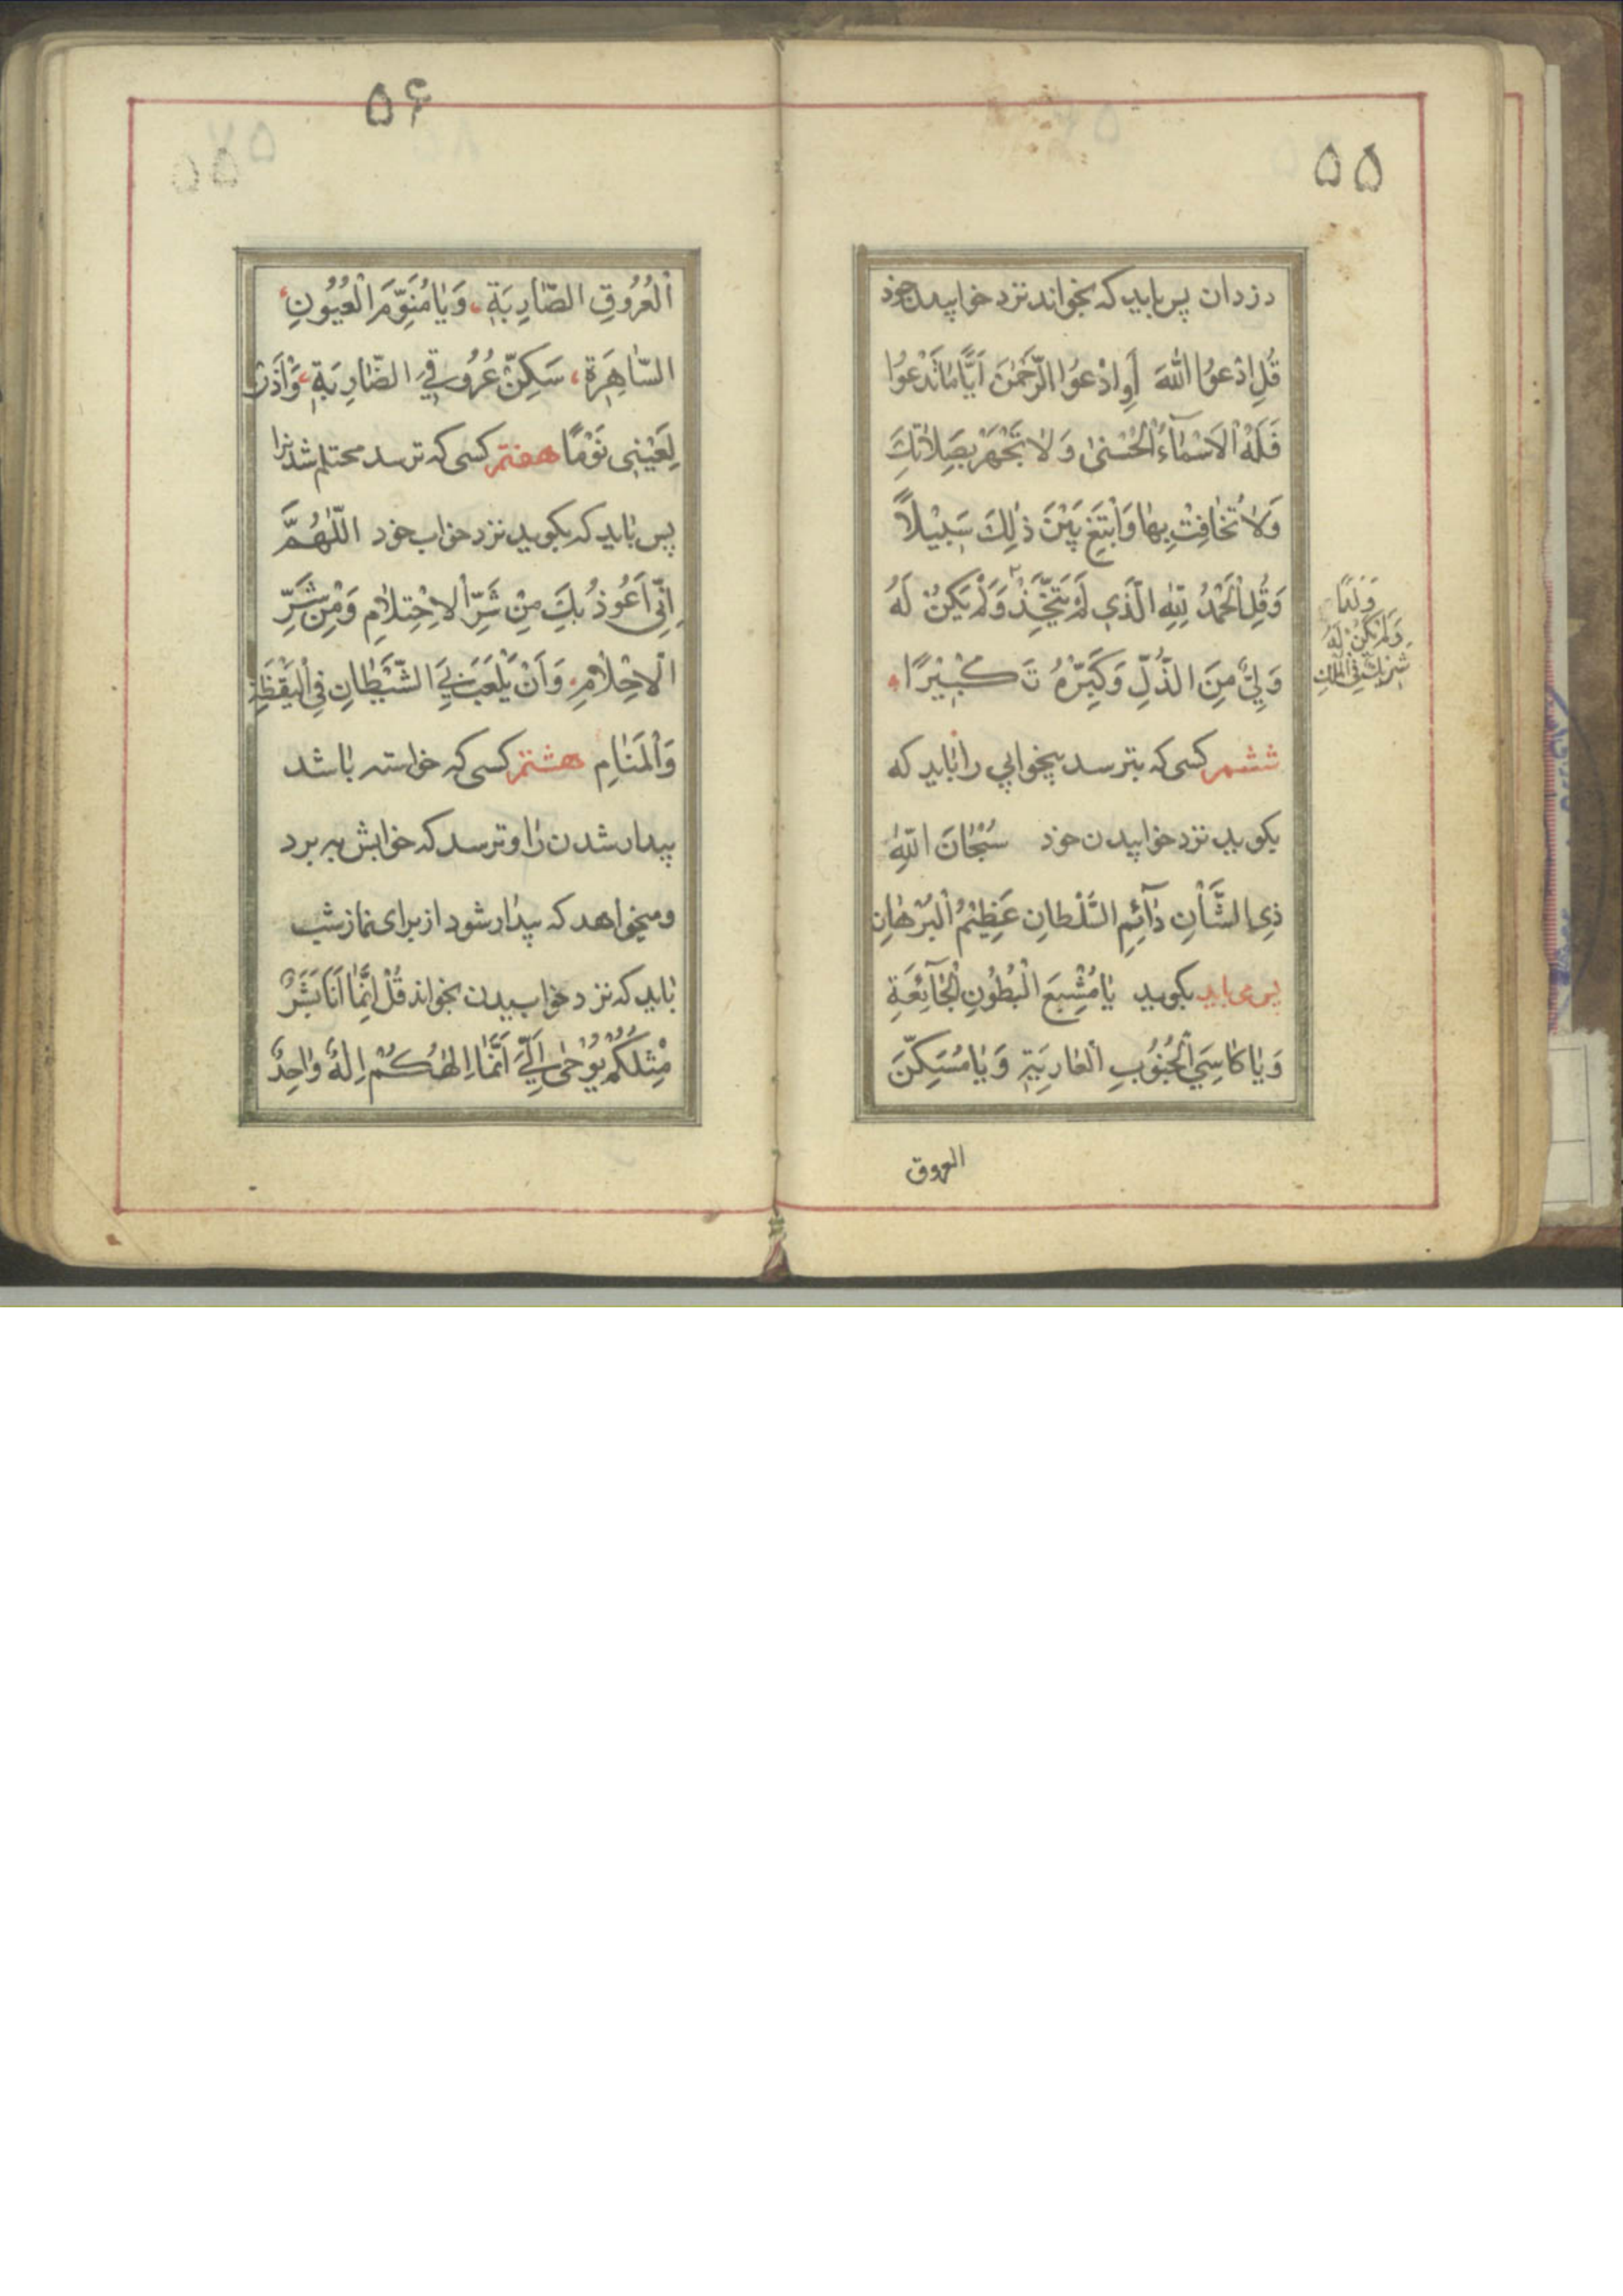 ۵۵
دزدان پس باید که بخواند نزد خوابیدن خود
قُلِ ادْعُوا اللّٰهَ أَوِ ادْعُوا الرَّحْمٰنَ اَيًّا مٰا تَدْعُوا
فَلَهُ الْاَسْمٰآءُ الْحُسْنىٰ وَ لٰا تَجْهَرْ بِصَلٰاتِكَ
وَلٰا تُخٰافِتْ بِهٰا وَابْتَغِ بَيْنَ ذٰلِكَ سَبِيْلاً
وَقُلِ الْحَمْدُ لِلّٰهِ الَّذِي لَمْ يَتَّخِذْ وَلَمْ يَكُنْ لَهُ
وَلَدًا
وَلَمْ يَكُنْ لَهُ
شَرِيْكٌ فِي الْمُلْكِ
وَلِيٌّ مِنَ الذُّلِّ وَكَبِّرْهُ تَكْبِيْرًا
ششم کسی که بترسد بیخوابی را باید که
بکوید نزد خوابیدن خود سُبْحٰانَ اللّٰهِ
ذِي الشَّأْنِ دٰآئِمِ السُّلْطٰانِ عَظِيْمُ الْبُرْهٰانِ
پس می باید بکوید يٰا مُشْبِعَ الْبُطُوْنِ الْجٰآئِعَةِ
وَ يٰا كٰاسِيَ الْجُنُوْبِ الْعٰارِيَةِ وَ يٰا مُسَكِّنَ
العروق
۵۶
الْعُرُوْقِ الضّٰارِبَةِ وَ يٰا مُنَوِّمَ الْعُيُوْنِ
السّٰاهِرَةِ سَكِّنْ عُرُوْقِيَ الضّٰارِبَةِ وَأْذَنْ
لِعَيْنِي نَوْمًا هفتم کسی که ترسد محتلم شدن را
پس باید که بکوید نزد خواب خود اللّٰهُمَّ
اِنِّي اَعُوْذُ بِكَ مِنْ شَرِّ الْاِحْتِلٰامِ وَ مِنْ شَرِّ
الْاَحْلٰامِ وَاَنْ يَلْعَبَ بِيَ الشَّيْطٰانِ فِي الْيَقْظَةِ
وَالْمَنٰامِ هشتم کسی که خواسته باشد
بیدار شدن را و ترسد که خوابش به برد
و میخواهد که بیدار شود از برای نماز شب
باید که نزد خوابیدن بخواند قُلْ اِنَّمٰا اَنَا بَشَرٌ
مِثْلُكُمْ يُوْحىٰ اِلَيَّ اَنَّمٰا اِلٰهُكُمْ اِلٰهٌ وٰاحِدٌ